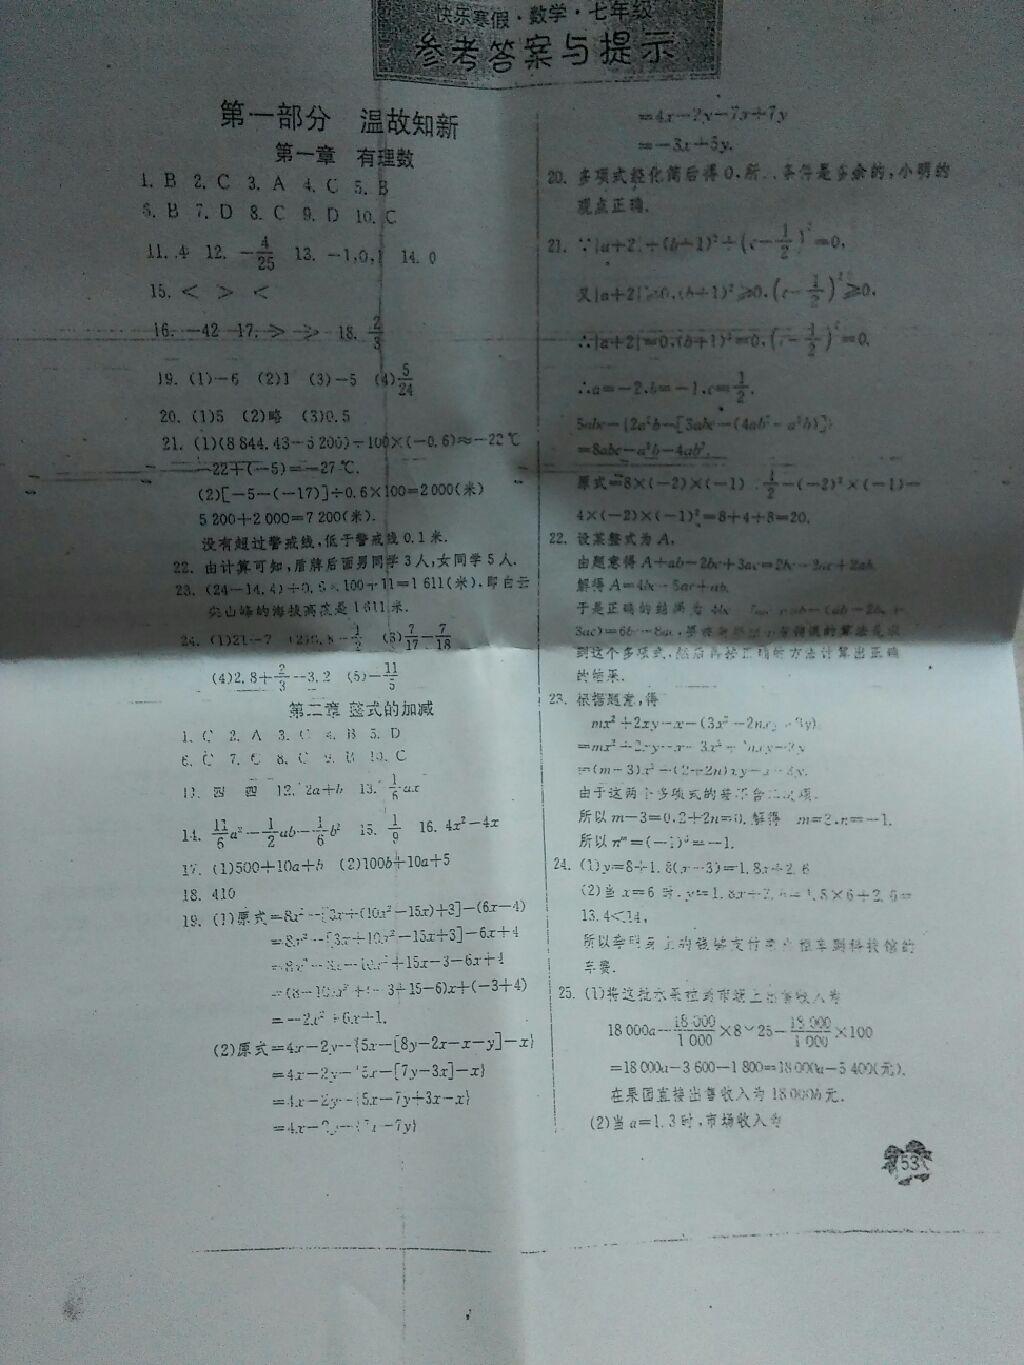 快乐寒假·数学·七年级
参考答案与提示
第一部分 温故知新
第一章 有理数
1. B 2. C 3. A 4. C 5. B
6. B 7. D 8. C 9. D 10. C
11. 4 12. -4/25 13. -1,0,1 14. 0
15. < > <
16. -42 17. > > 18. 2/3
19. (1)-6 (2)1 (3)-5 (4)5/24
20. (1)5 (2)略 (3)0.5
21. (1)(8 844.43-5 200)÷100×(-0.6)≈-22℃
-22+(-5)=-27℃.
(2)[-5-(-17)]÷0.6×100=2 000(米)
5 200+2 000=7 200(米).
没有超过警戒线,低于警戒线0.1米.
22. 由计算可知,盾牌后面男同学3人,女同学5人.
23. (24-14.4)÷0.6×100+11=1 611(米),即白云
尖山峰的海拔高度是1 611米.
24. (1)21-7 (3)7/17-7/18
(4)2.8+2/3-3.2 (5)-11/5
第二章 整式的加减
1. C 2. A 3. C 4. B 5. D
6. C 7. C 8. C 9. B 10. C
11. 四 四 12. 2a+b 13. 1/6 ax
14. 11/6 a²-1/2 ab-1/6 b² 15. 1/9 16. 4x²-4x
17. (1)500+10a+b (2)100b+10a+5
18. 410
19. (1)原式=8x²-[3x+(10x²-15x)+3]-(6x-4)
=8x²-[3x+10x²-15x+3]-6x+4
=8x²-3x-10x²+15x-3-6x+4
=(8-10)x²+(-3+15-6)x+(-3+4)
=-2x²+6x+1.
(2)原式=4x-2y-{5x-[8y-2x-x-y]-x}
=4x-2y-{5x-[7y-3x]-x}
=4x-2y-{5x-7y+3x-x}
=4x-2y-{7x-7y}
=4x-2y-7x+7y
=-3x+5y.
20. 多项式经化简后得0,所 条件是多余的,小明的
观点正确.
21. ∵|a+2|+(b+1)²+(c-1/2)²=0,
又|a+2|≥0,(b+1)²≥0,(c-1/2)²≥0,
∴|a+2|=0,(b+1)²=0,(c-1/2)²=0,
∴a=-2,b=-1,c=1/2.
5abc-{2a²b-[3abc-(4ab²-a²b)]}
=8abc-a²b-4ab².
原式=8×(-2)×(-1)×1/2-(-2)²×(-1)-
4×(-2)×(-1)²=8+4+8=20.
22. 设某整式为A,
由题意得A+ab-2bc+3ac=2bc-3ac+2ab.
解得A=4bc-5ac+ab.
于是正确的结果为
到这个多项式,然后再按正确的方法计算出正确
的结果.
23. 根据题意,得
mx²+2xy-x-(3x²-2nxy+3y)
=mx²+2xy-x-3x²+2nxy-3y
=(m-3)x²+(2+2n)xy-x-3y.
由于这两个多项式的差不含二次项.
所以m-3=0,2+2n=0.解得 m=3,n=-1.
所以nᵐ=(-1)³=-1.
24. (1)y=8+1.8(x-3)=1.8x+2.6
(2)当x=6时,y=1.8x+2.6=1.8×6+2.6=
13.4<14,
所以李明身上的钱够支付乘出租车到科技馆的
车费.
25. (1)将这批水果拉到市场上出售收入为
18 000a-18 000/1 000×8×25-18 000/1 000×100
=18 000a-3 600-1 800=18 000a-5 400(元).
在果园直接出售收入为18 000b元.
(2)当a=1.3时,市场收入为
53